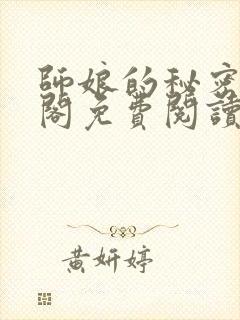 師娘的秘密
閣免費閱讀
黃妍婷